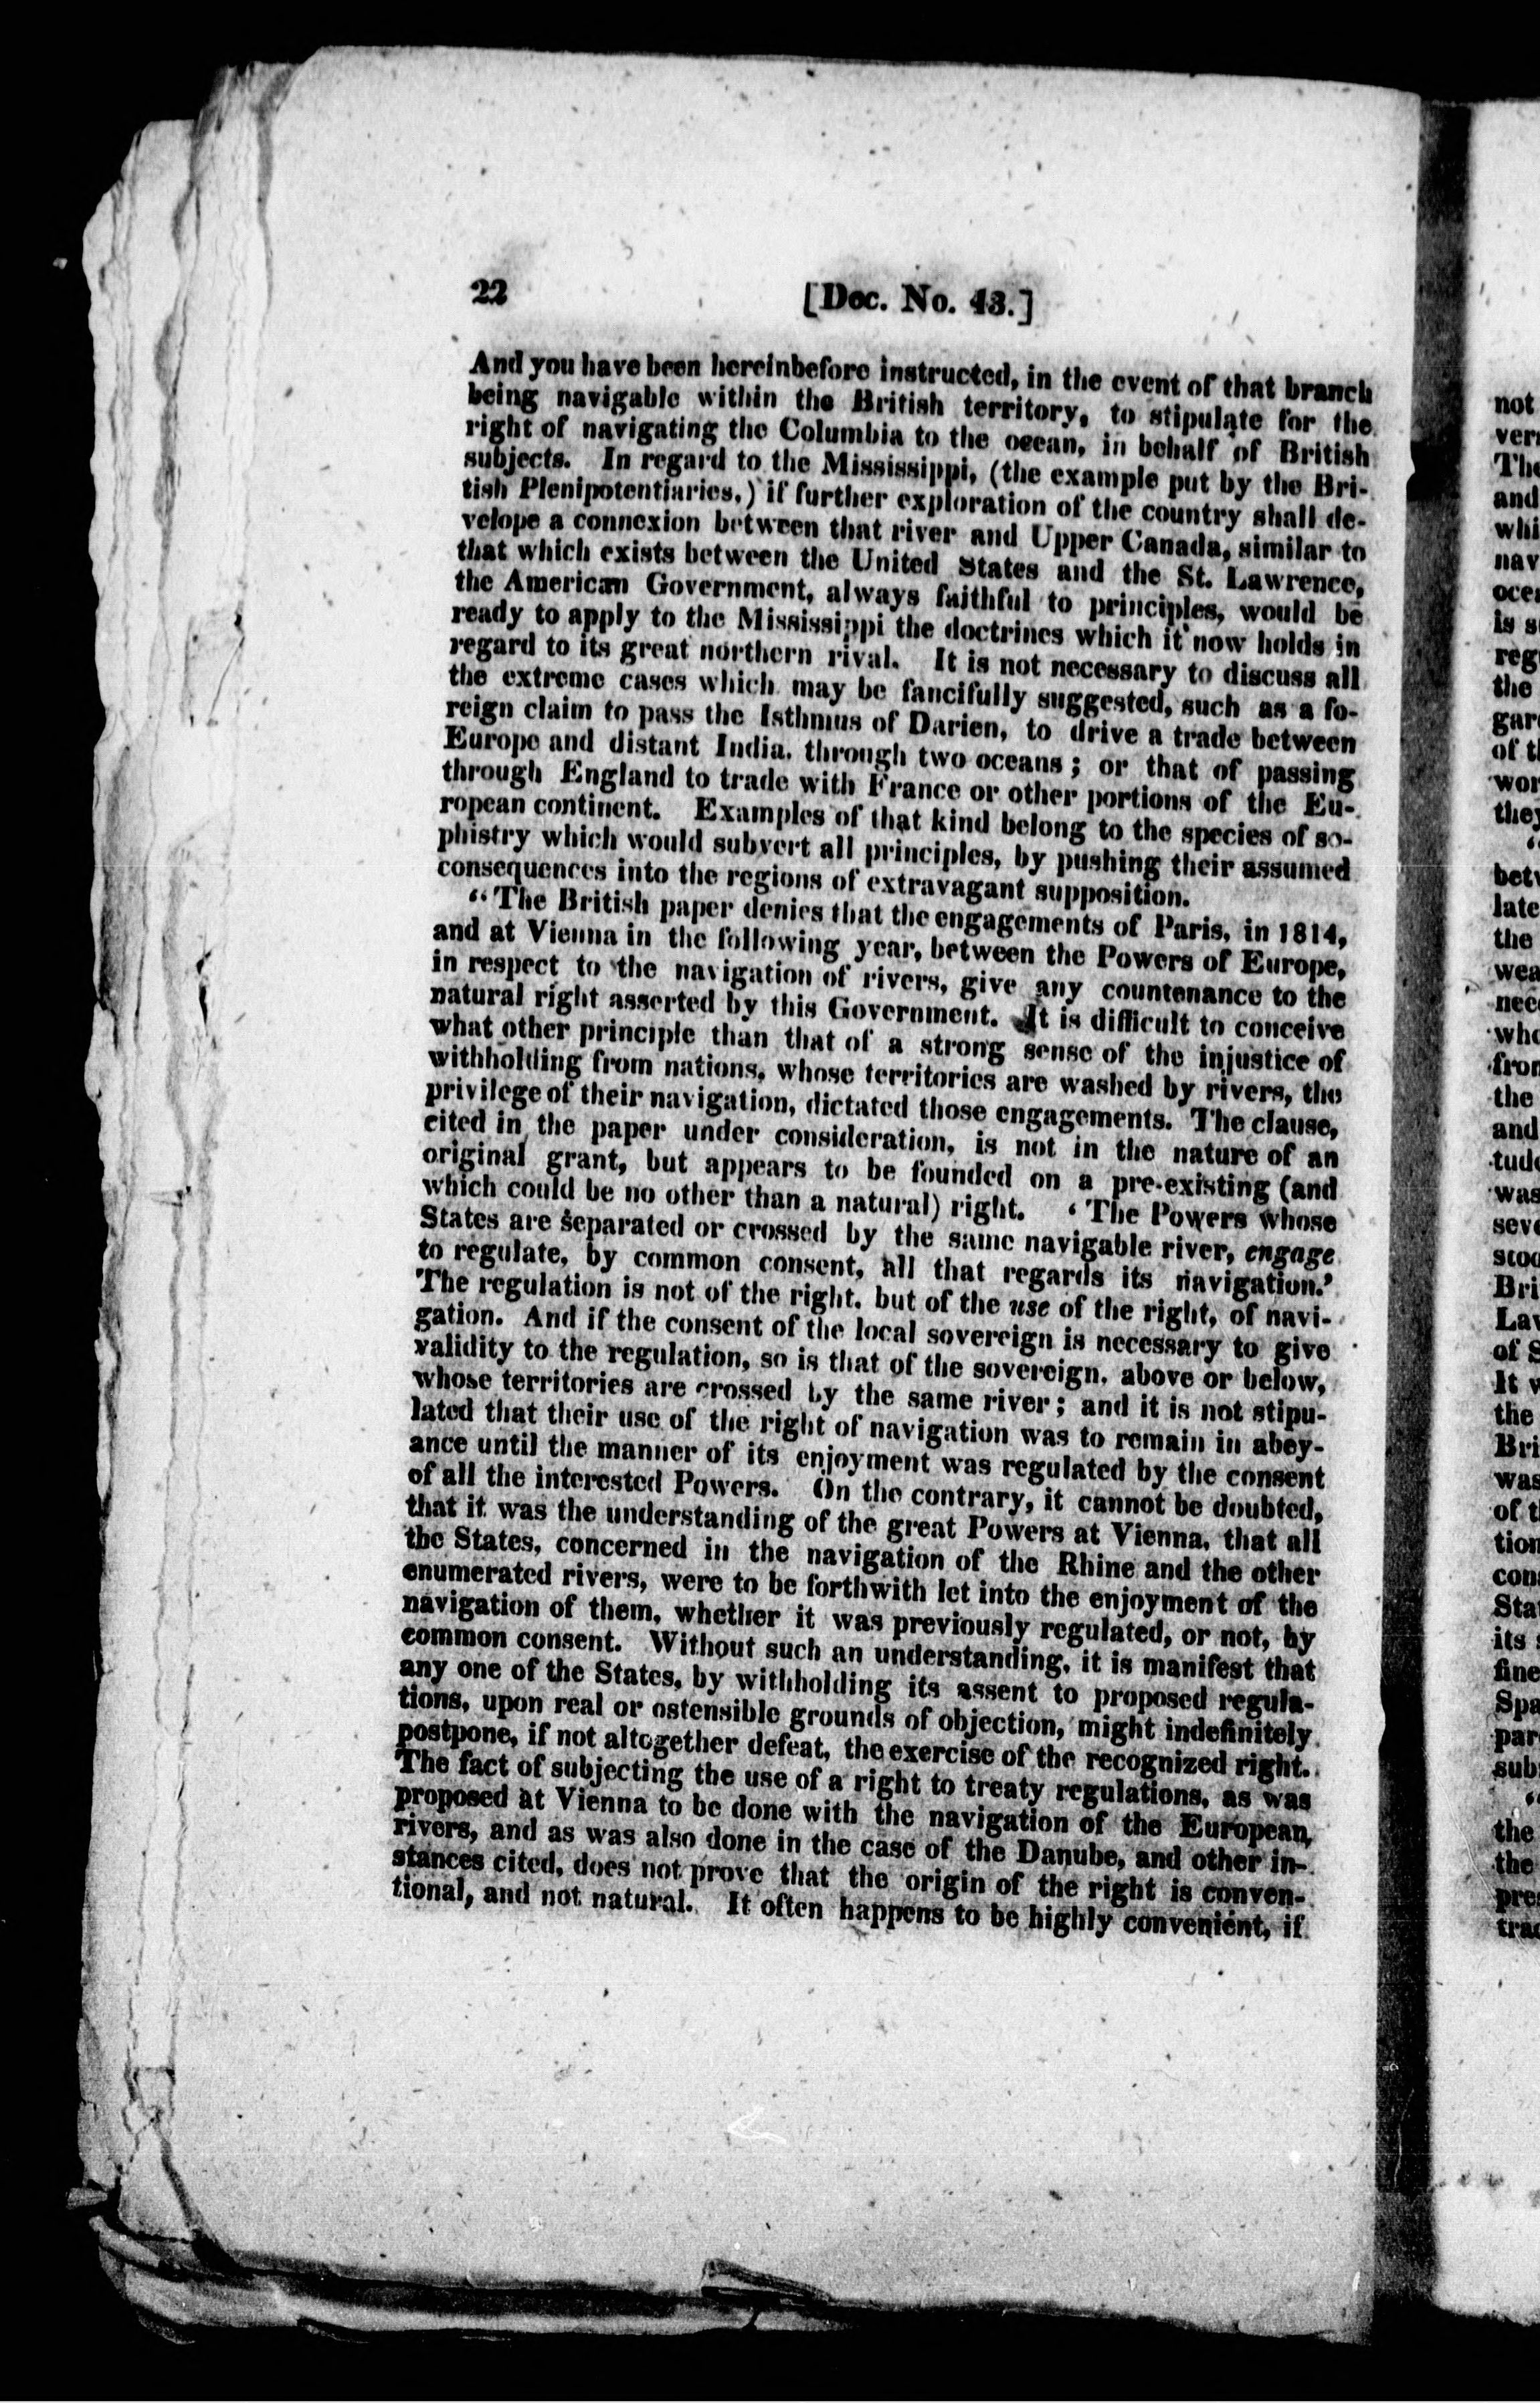 22 [Doc. No. 43.]
And you have been hereinbefore instructed, in the event of that branch
being navigable within the British territory, to stipulate for the
right of navigating the Columbia to the ocean, in behalf of British
subjects. In regard to the Mississippi, (the example put by the Bri-
tish Plenipotentiaries,) if further exploration of the country shall de-
velope a connexion between that river and Upper Canada, similar to
that which exists between the United States and the St. Lawrence,
the American Government, always faithful to principles, would be
ready to apply to the Mississippi the doctrines which it now holds in
regard to its great northern rival. It is not necessary to discuss all
the extreme cases which may be fancifully suggested, such as a fo-
reign claim to pass the Isthmus of Darien, to drive a trade between
Europe and distant India, through two oceans; or that of passing
through England to trade with France or other portions of the Eu-
ropean continent. Examples of that kind belong to the species of so-
phistry which would subvert all principles, by pushing their assumed
consequences into the regions of extravagant supposition.
"The British paper denies that the engagements of Paris, in 1814,
and at Vienna in the following year, between the Powers of Europe,
in respect to the navigation of rivers, give any countenance to the
natural right asserted by this Government. It is difficult to conceive
what other principle than that of a strong sense of the injustice of
withholding from nations, whose territories are washed by rivers, the
privilege of their navigation, dictated those engagements. The clause,
cited in the paper under consideration, is not in the nature of an
original grant, but appears to be founded on a pre-existing (and
which could be no other than a natural) right. 'The Powers whose
States are separated or crossed by the same navigable river, engage
to regulate, by common consent, all that regards its navigation.'
The regulation is not of the right, but of the use of the right, of navi-
gation. And if the consent of the local sovereign is necessary to give
validity to the regulation, so is that of the sovereign, above or below,
whose territories are crossed by the same river; and it is not stipu-
lated that their use of the right of navigation was to remain in abey-
ance until the manner of its enjoyment was regulated by the consent
of all the interested Powers. On the contrary, it cannot be doubted,
that it was the understanding of the great Powers at Vienna, that all
the States, concerned in the navigation of the Rhine and the other
enumerated rivers, were to be forthwith let into the enjoyment of the
navigation of them, whether it was previously regulated, or not, by
common consent. Without such an understanding, it is manifest that
any one of the States, by withholding its assent to proposed regula-
tions, upon real or ostensible grounds of objection, might indefinitely
postpone, if not altogether defeat, the exercise of the recognized right.
The fact of subjecting the use of a right to treaty regulations, as was
proposed at Vienna to be done with the navigation of the European
rivers, and as was also done in the case of the Danube, and other in-
stances cited, does not prove that the origin of the right is conven-
tional, and not natural. It often happens to be highly convenient, if